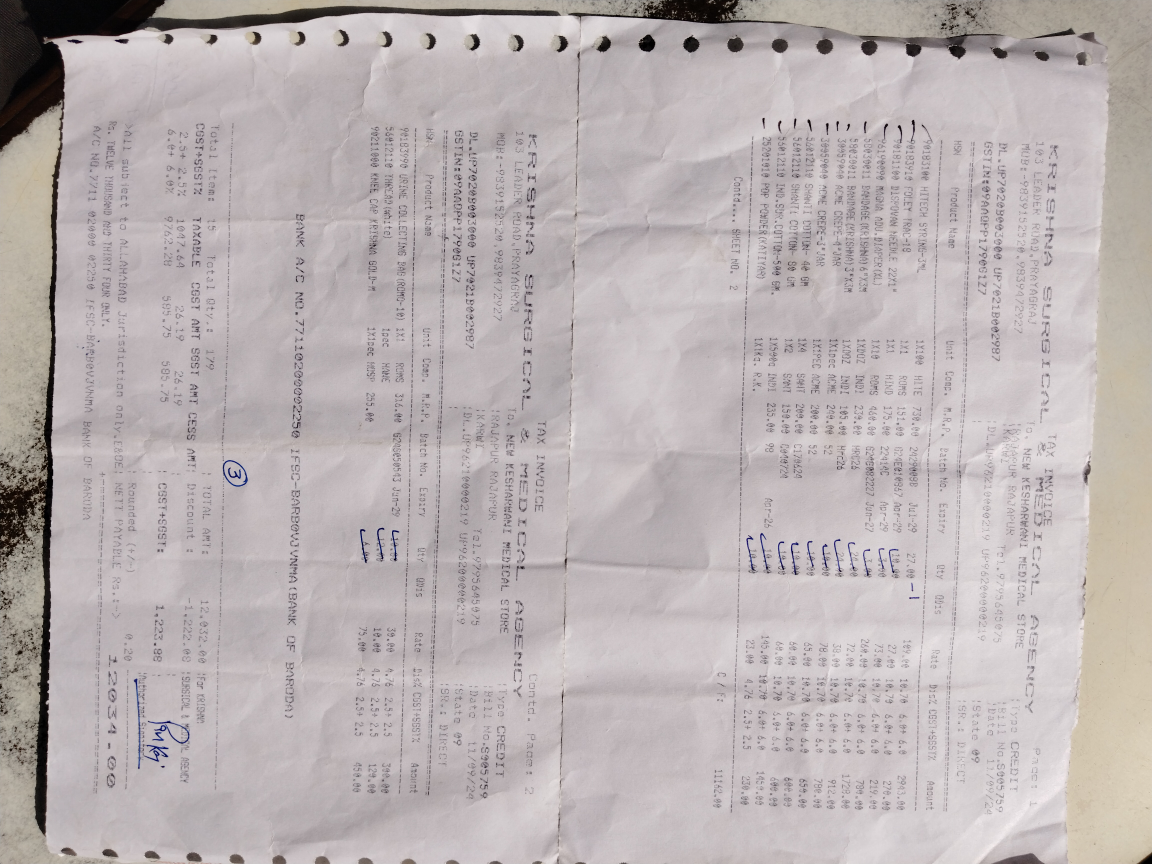 KRISHNA SURGICAL & MEDICAL AGENCY Page: 1
103 LEADER ROAD,PRAYAGRAJ TAX INVOICE :Type CREDIT
MOB:-9839152520,9839472927 To. NEW KESHARWANI MEDICAL STORE :Bill No.S005759
:RAJAPUR RAJAPUR :Date 11/09/24
DL.UP7020B003000 UP7021B002987 :KARWI Tel.9795645075 :State 09
GSTIN:09AADPP1790G1Z7 :DL.UP96210000219 UP9620000219 :SR.: DIRECT
HSN Product Name Unit Comp. M.R.P. Batch No. Expiry Qty QDis Rate Dis% CGST+SGST% Amount
90183100 HITECH SYRING-3ML 1X100 HITE 730.00 Jul-29 27.00 -1 109.00 10.70 6.0+ 6.0 2943.00
1X1 ROMS 151.00 Apr-29 10.00 27.00 10.70 6.0+ 6.0 270.00
90183100 DISPOVAN NEEDLE 22/1" 1X1 HIND 175.00 Apr-29 73.00 10.70 6.0+ 6.0 219.00
9619 MAGNA ADU.DIAPER(XL) 1X10 ROMS 460.00 Jun-27 260.00 10.70 6.0+ 6.0 780.00
BANDAGE(KRISHNA)6*X3M 1XDOZ INDI 239.00 HRC26 72.00 10.70 6.0+ 6.0 1728.00
BANDAGE(KRISHNA)3*X3M 1XDOZ INDI 105.00 HRC26 38.00 10.70 6.0+ 6.0 912.00
ACME CREPE-4"JAR 1X1pec ACME 250.00 52 78.00 10.70 6.0+ 6.0 780.00
ACME CREPE-3"JAR 1X1PEC ACME 200.00 52 65.00 10.70 6.0+ 6.0 650.00
56012110 SHANTI COTTON- 40 GM 1X4 SANT 200.00 60.00 10.70 6.0+ 6.0 600.00
56012110 SHANTI COTTON- 80 GM 1X2 SANT 150.00 60.00 10.70 6.0+ 6.0 600.00
56012110 IND.SUR.COTTON-500 GM. 1X500g INDI Apr-26 10.00 145.00 10.70 6.0+ 6.0 1450.00
25201010 POP POWDER(VATIYARD) 1X1Kg. R.K. 235.00 98 10.00 23.00 4.76 2.5+ 2.5 230.00
Contd..... SHEET NO. 2 C / F: 11162.00
KRISHNA SURGICAL & MEDICAL AGENCY Contd. Page: 2
103 LEADER ROAD,PRAYAGRAJ TAX INVOICE :Type CREDIT
MOB:-9839152520,9839472927 To. NEW KESHARWANI MEDICAL STORE :Bill No.S005759
:RAJAPUR RAJAPUR :Date 11/09/24
DL.UP7020B003000 UP7021B002987 :KARWI Tel.9795645075 :State 09
GSTIN:09AADPP1790G1Z7 :DL.UP96210000219 UP9620000219 :SR.: DIRECT
HSN Product Name Unit Comp. M.R.P. Batch No. Expiry Qty QDis Rate Dis% CGST+SGST% Amount
90183990 URINE COLLECTING BAG(ROMO-10) 1X1 ROMS 314.00 Jun-29 10.00 30.00 4.76 2.5+ 2.5 300.00
56012110 THREAD(White) 1pec HOME 12.00 10.00 4.76 2.5+ 2.5 120.00
90211000 KNEE CAP KRISHNA GOLD-M 1X1pec HOSP 255.00 6.00 75.00 4.76 2.5+ 2.5 450.00
BANK A/C NO.77110200002250 IFSC-BARB0VJWNMA(BANK OF BARODA)
3
Total Item: 15 Total Qty.: 179 : TOTAL AMT: 12,032.00 :For KRISHNA
CGST+SGST% TAXABLE CGST AMT SGST AMT CESS AMT: Discount : -1,222.08 :SURGICAL & MEDICAL AGENCY
2.5+ 2.5% 1047.64 26.19 26.19
6.0+ 6.0% 9762.28 585.75 585.75 : CGST+SGST: 1,223.88 :
Authorised Signatory
: Rounded (+/-) 0.20
>All subject to ALLAHABAD Jurisdiction only.E&OE : NETT PAYABLE Rs.:-> 12034.00
Rs. TWELVE THOUSAND AND THIRTY FOUR ONLY.
A/C NO.7711 02000 02250 IFSC-BARB0VJWNMA BANK OF BARODA